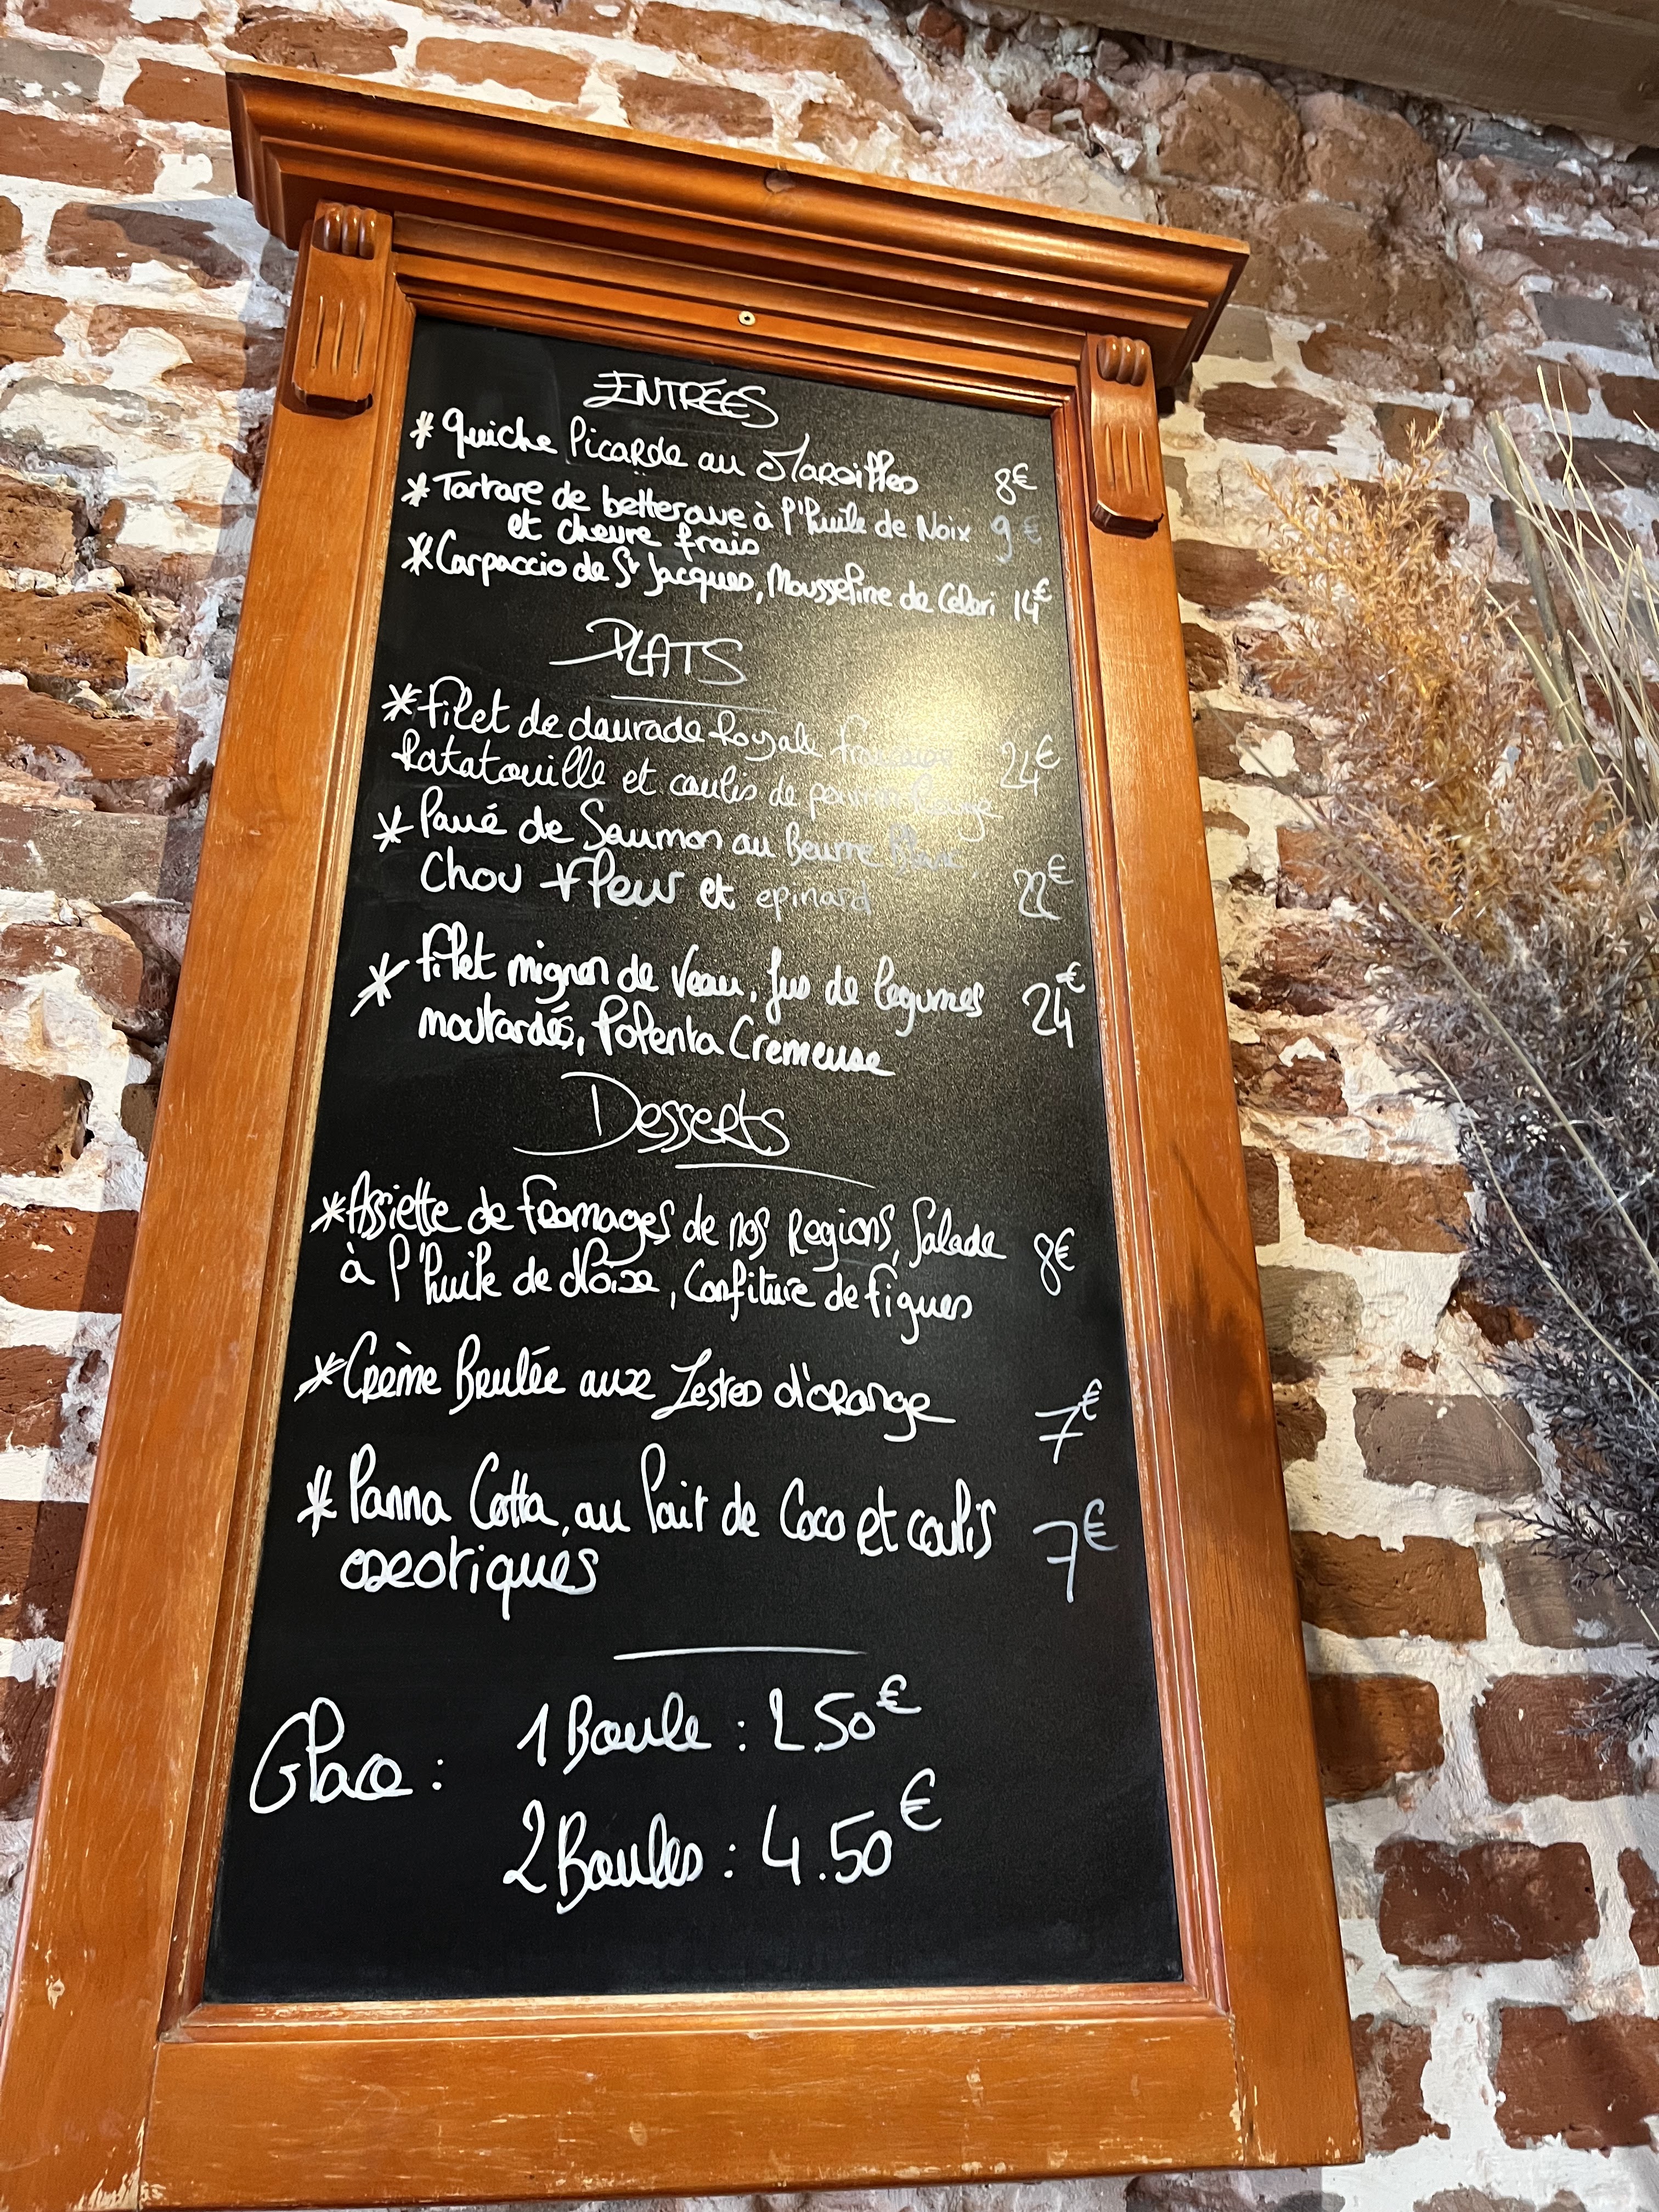 ENTRÉES
* Quiche Picarde au Maroilles 8€
* Tartare de betterave à l'huile de Noix 9€
et chevre frais
* Carpaccio de St Jacques, Mousseline de Celeri 14€
PLATS
* Filet de daurade Royale française 24€
Ratatouille et coulis de poivron Rouge
* Pavé de Saumon au Beurre Blanc,
Chou Fleur et epinard 22€
* Filet mignon de Veau, Jus de legumes 24€
moutardés, Polenta Cremeuse
Desserts
* Assiette de fromages de nos Regions, Salade 8€
à l'huile de Noix, Confiture de figues
* Crème Brulée aux Zestes d'orange 7€
* Panna Cotta, au lait de Coco et coulis 7€
exotiques
Glace : 1 Boule : 2.50€
2 Boules : 4.50€